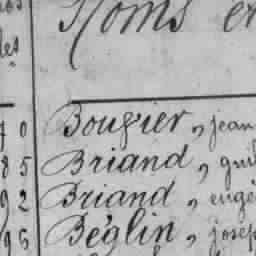 Noms et
70 Bouvier, jean
85 Briand, guil
92 Briand, eugé
96 Béglin, josep